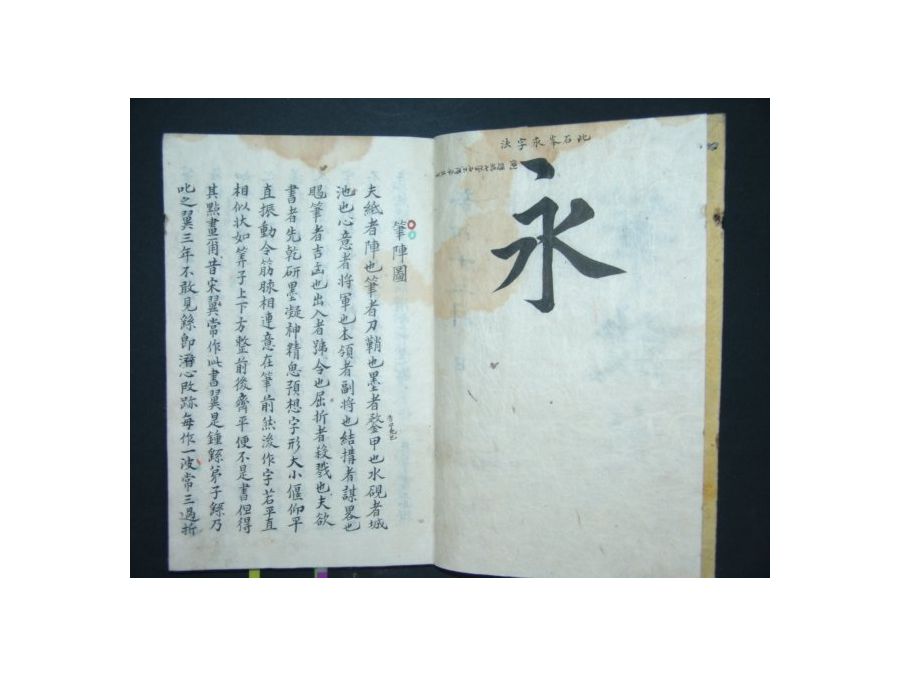 此石峯永字法
永
筆陣圖
夫紙者陣也筆者刀鞘也墨者鍪甲也水硯者城
池也心意者將軍也本領者副將也結搆者謀畧也
颺筆者吉凶也出入者號令也屈折者殺戮也夫欲
書者先乾研墨凝神精思預想字形大小偃仰平
直振動令筋脉相連意在筆前然後作字若平直
相似狀如筭子上下方整前後齊平便不是書但得
其點畫爾昔宋翼當作此書翼是鍾繇弟子繇乃
叱之翼三年不敢見繇即潛心改跡每作一波常三過折